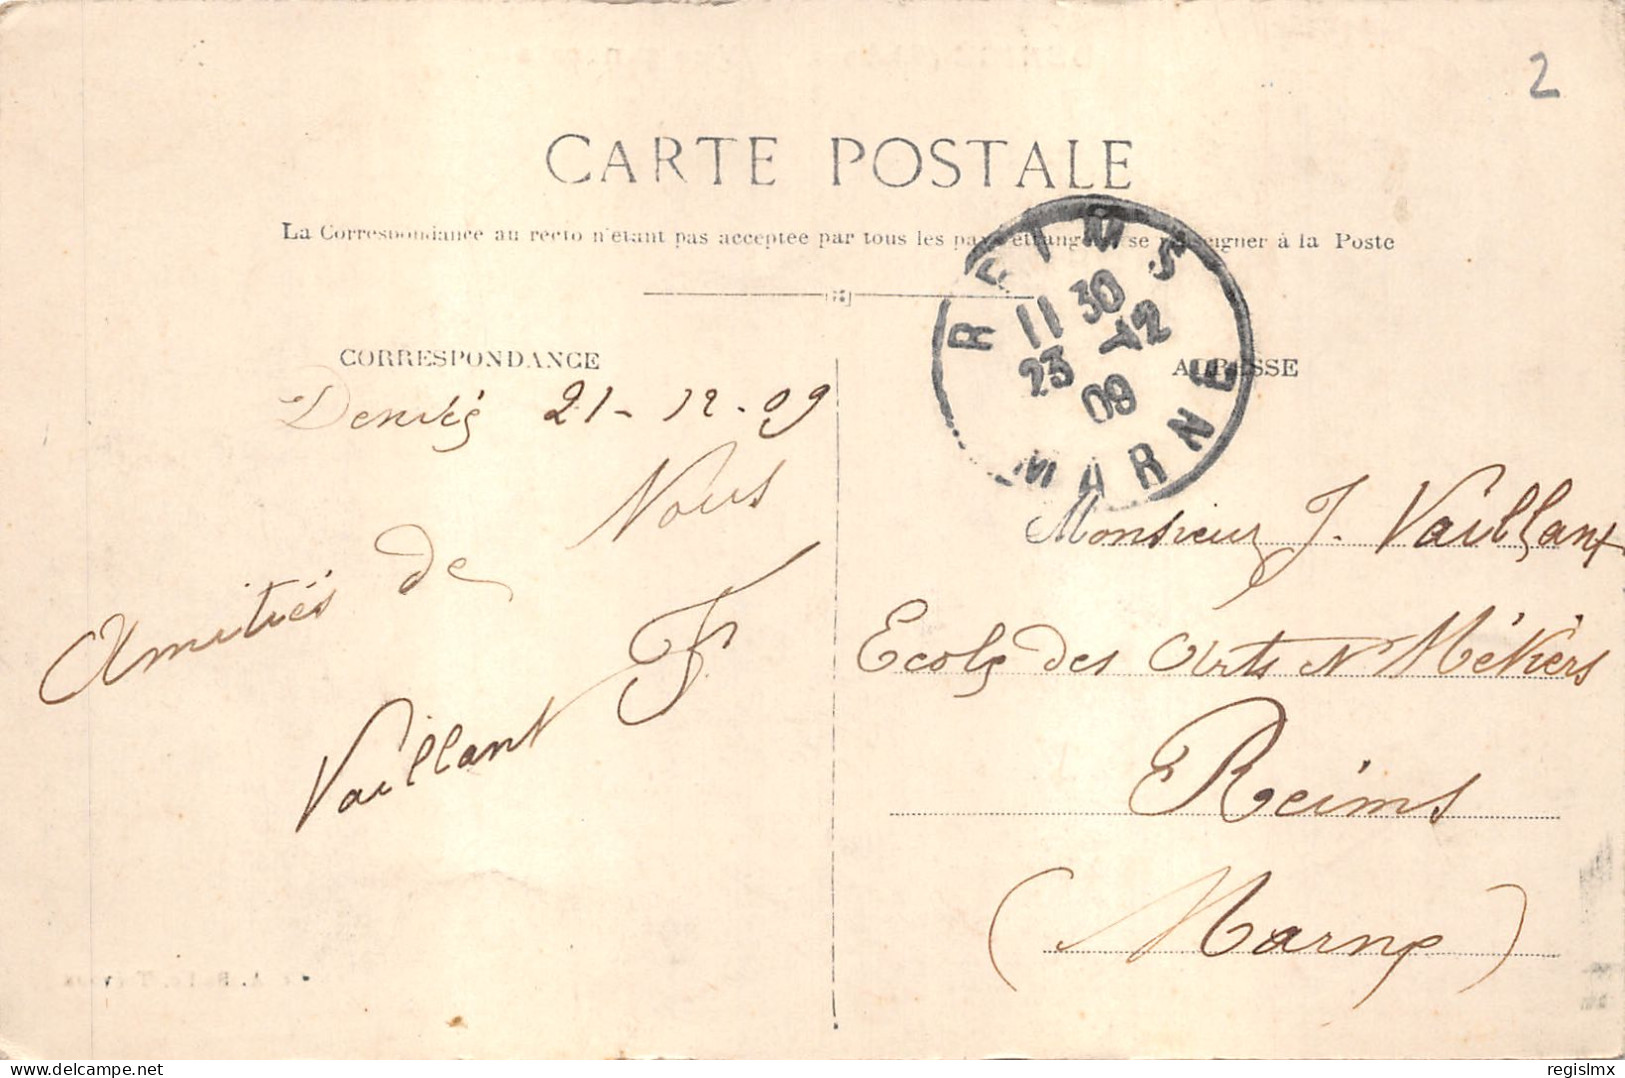 2
CARTE POSTALE
La Correspondance au recto n'étant pas acceptée par tous les pays étrangers, se renseigner à la Poste
REIMS
11 30
23 12
09
MARNE
CORRESPONDANCE
ADRESSE
21-12-09
Amitiés de Nous
Vaillant F
Monsieur J. Vaillant
Ecole des Arts et Métiers
Reims
(Marne)
delcampe.net
regislmx